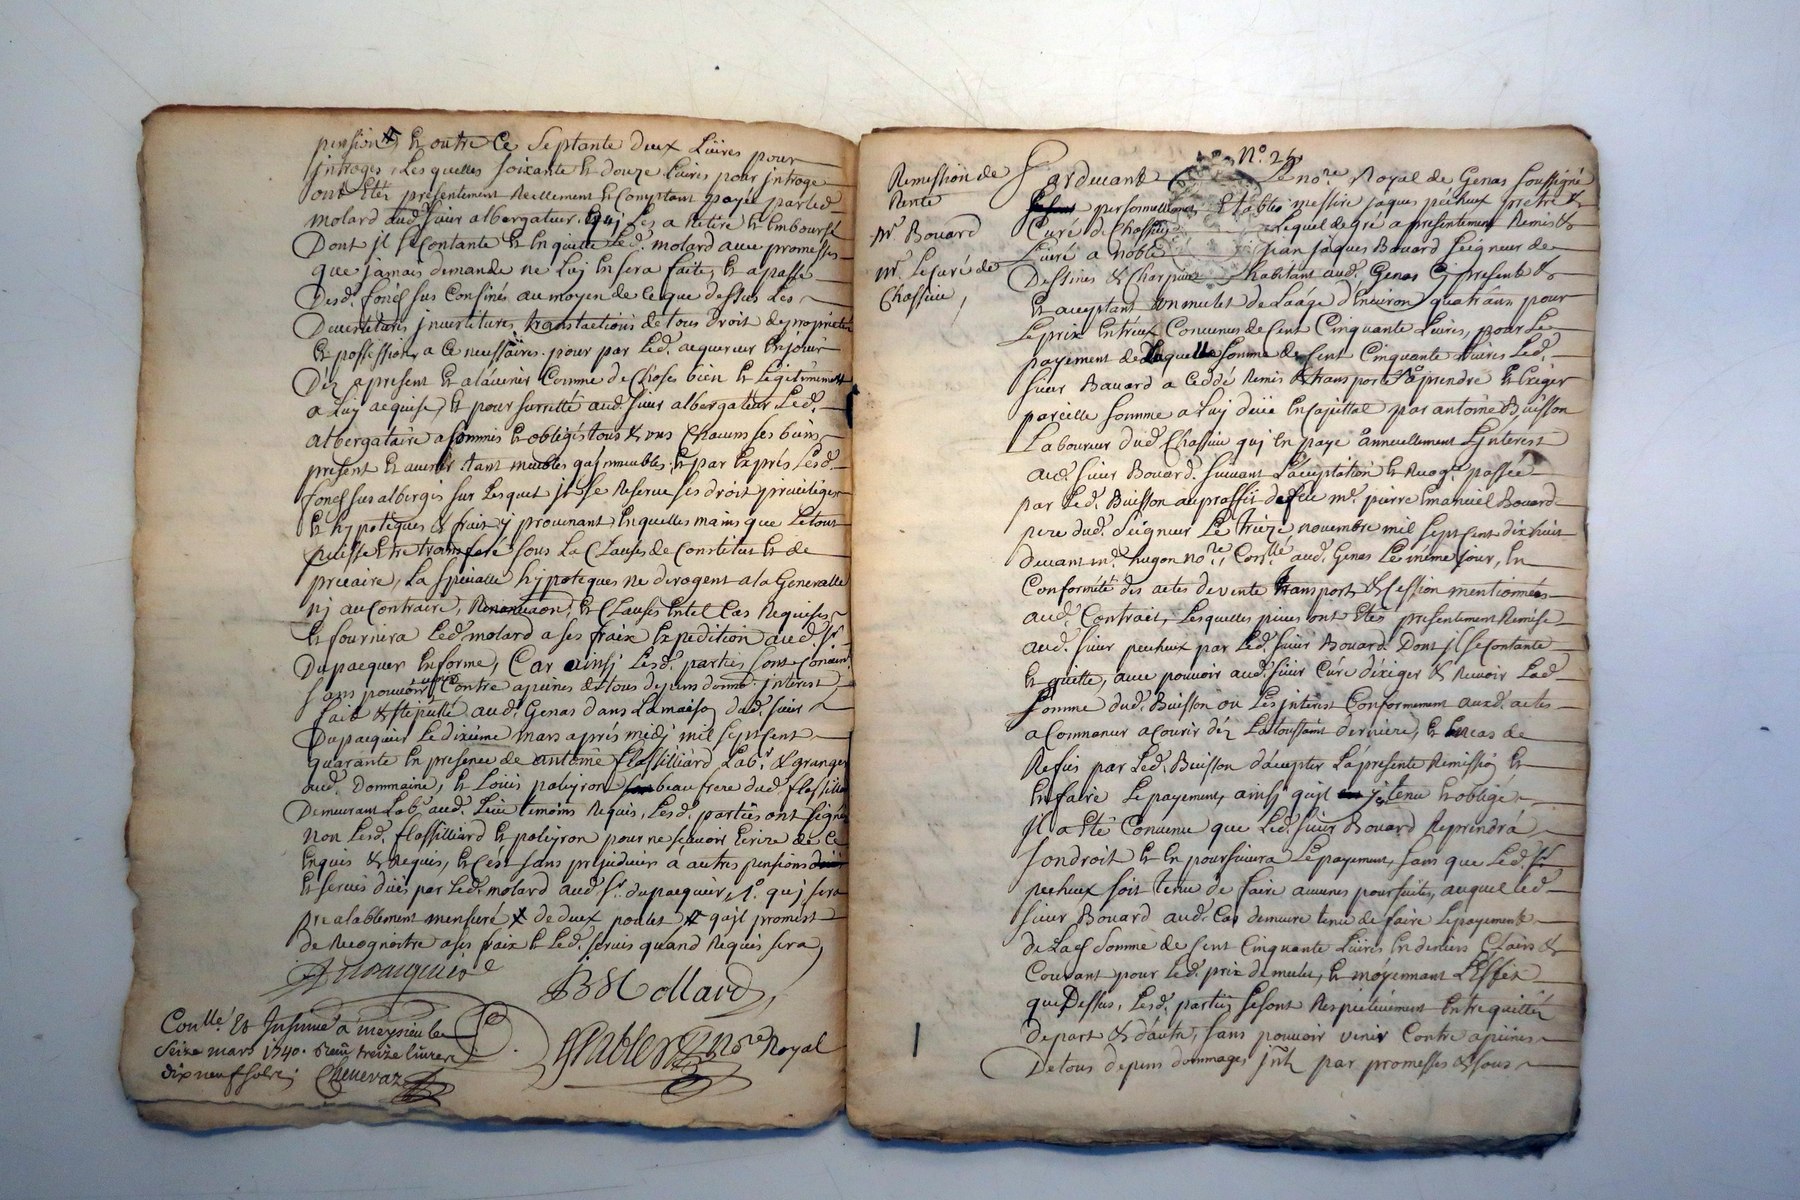 pension, et outre ce septante deux Livres pour
introges, Lesquelles soixante et douze Livres pour introge
ont Etés présentement Reellement et Comptant payée par led.
molard aud. sieur albergateur. qui Les a Retiré et Emboursé
Dont il se Contante et En quitte Led. molard avec promesses
que jamais demande ne Luy En sera faite, et a passé
Desd. fonds sus Confinés au moyen de ce que dessus Les
Devestitures investitures, translactions de tous droit de propriété
et possession a ce necessaires. pour par Led. acquereur En jouir
Dez a present et a l'avenir Comme de Choses bien et Legitimement
a Luy acquise, et pour surretté aud. sieur albergateur Led.
albergataire a sommis et obligés tous et uns Chacuns ses biens
present et avenir tant meubles qu'immeubles. et par Exprés Lesd.
fonds sus albergés sur Lesquels il se Reserve ses droit privilegés
et hypoteques & fruits y provenant En quelles mains que Le tout
puisse Etre transferé sous La Clause de Constitut et de
precaire, La specialle hypoteques ne derogent a la Generalle
ny au Contraire, Renonciaon, et Clauses En tel Cas Requises
et fournira Led. molard a ses fraix Expedition aud. sr.
Dupacquier En forme, Car ainsi Lesd. parties sont Convenu
sans pouvoir venir Contre a peines de tous depens dommd. interest,
fait & stipullé aud. Genas dans La maison dud. sieur
Dupacquier Le dixieme mars aprés midi mil sept cent
quarante En presence de antoine flassilliard Labr. & granger
dud. Dommaine, et Louis poleyron beaufrere dud. flassilliard
Demeurant Labr. aud. Lieu temoins Requis, Lesd. parties ont signés
non Lesd. flassilliard et poleyron pour ne scavoir Ecrire de ce
Enquis & Requis, et c'est sans prejudicier à autres pensions
et servis düe par Led. molard aud. sr. dupacquier, qui sera
prealablement mensuré de deux poulet qu'il promest
de Recognoitre a ses fraix et Led. servis quand Requis sera,
B Mollard
Nore Royal
Conllé. Et Insinué a meysieu le
Seize mars 1740. Reçu treize livres
dix neuf sols
Chenevaz
No. 24
Remission de
Rente
Mr. Bouard
Mr. Le Curé de
Chassieu,
Pardevant Le nore. Royal de Genas soussigné
personnellement Etablis messire jaques pécheux prètre &
Curé de Chassieu Lequel de gré a présentement Remis &
Livré a noble jean jaques Bouard seigneur de
Dessines & Charpieu habitant aud. Genas Cy present &
et acceptant un mulet de Laáge d'environ quatr'ans pour
Le prix Entreux Convenus de Cent Cinquante Livres, pour Le
payement de Laquelle somme de Cent Cinquante Livres Led.
sieur Bouard a Ceddé Remis & transporté a prendre et Exiger
pareille somme a Luy deüe En Capittal par antoine Buisson
Laboureur dud. Chassieu qui En paye annuellement L'interest
aud. sieur Bouard. suivant L'acceptation et Recogn. passée
par Led. Buisson au proffit de feu mr. pierre Emanuel Bouard
pere dud. seigneur Le treize novembre mil sept cent dixhuit
devant mr. hugon nore., Conllé. aud. Genas Le méme jour, En
Conformité des actes de vente transports & Cession mentionnées
aud. Contrait, Lesquelles pieces ont Etés présentement Remise
aud. sieur pecheux par Led. sieur Bouard. Dont il se Contante
et quitte, avec pouvoir aud. sieur Curé d'éxiger & Recevoir Lad.
somme dud. Buisson ou Les interest Conformement auxd. actes
a Commencer a Courir déz La toussaint derniere, et En cas de
Refus par Led. Buisson d'accepter La présente Remission et
En faire Le payement, ainsi qu'il y tenu et obligé
il a Eté Convenu que Led. sieur Bouard Reprendrá
son droit et En poursuivra Le payement, sans que Led. sr.
pecheux soit tenu de faire aucunes poursuites, auquel led.
sieur Bouard aud. Cas demeure tenu de faire Le payement
de Lad. somme de Cent Cinquante Livres En deniers Clairs &
Courant pour Led. prix de mulet, et moyennant L'Effet
que Dessus, Lesd. parties se sont Respectivement Entrequittés
de part & d'autre, sans pouvoir venir Contre a peines
De tous depens dommages, int. par promesses & sous